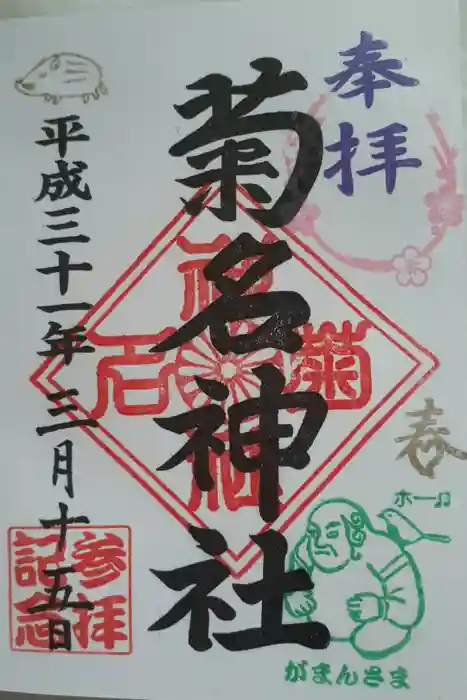 奉拝
菊名神社
平成三十一年三月十五日
春
ホー♫
がまんさま
参拝
記念
神
菊
名
社